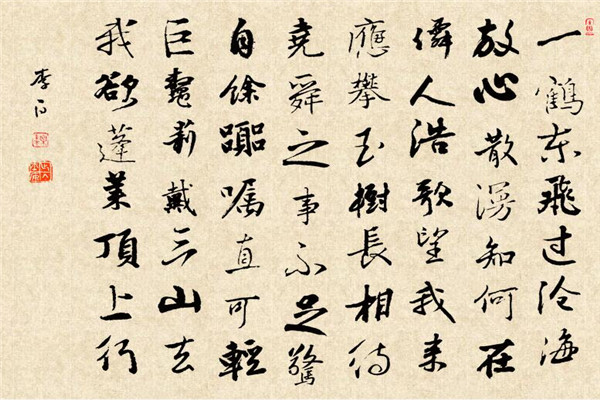 一鶴东飛过沧海
放心散漫知何在
僊人浩歌望我来
應攀玉樹長相待
堯舜之事不足驚
自餘直可輕
巨鼇戴三山去
我欲蓬莱頂上行
李白